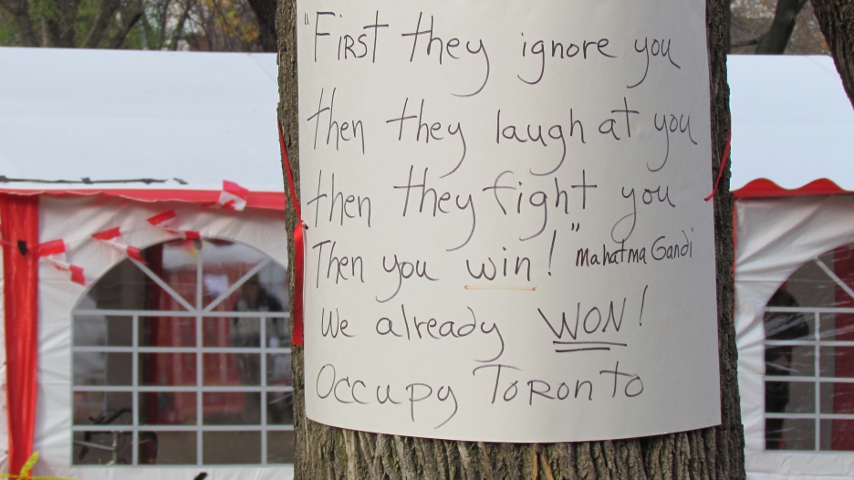 "First they ignore you
then they laugh at you
then they fight you
Then you win!" Mahatma Gandi
We already WON!
Occupy Toronto